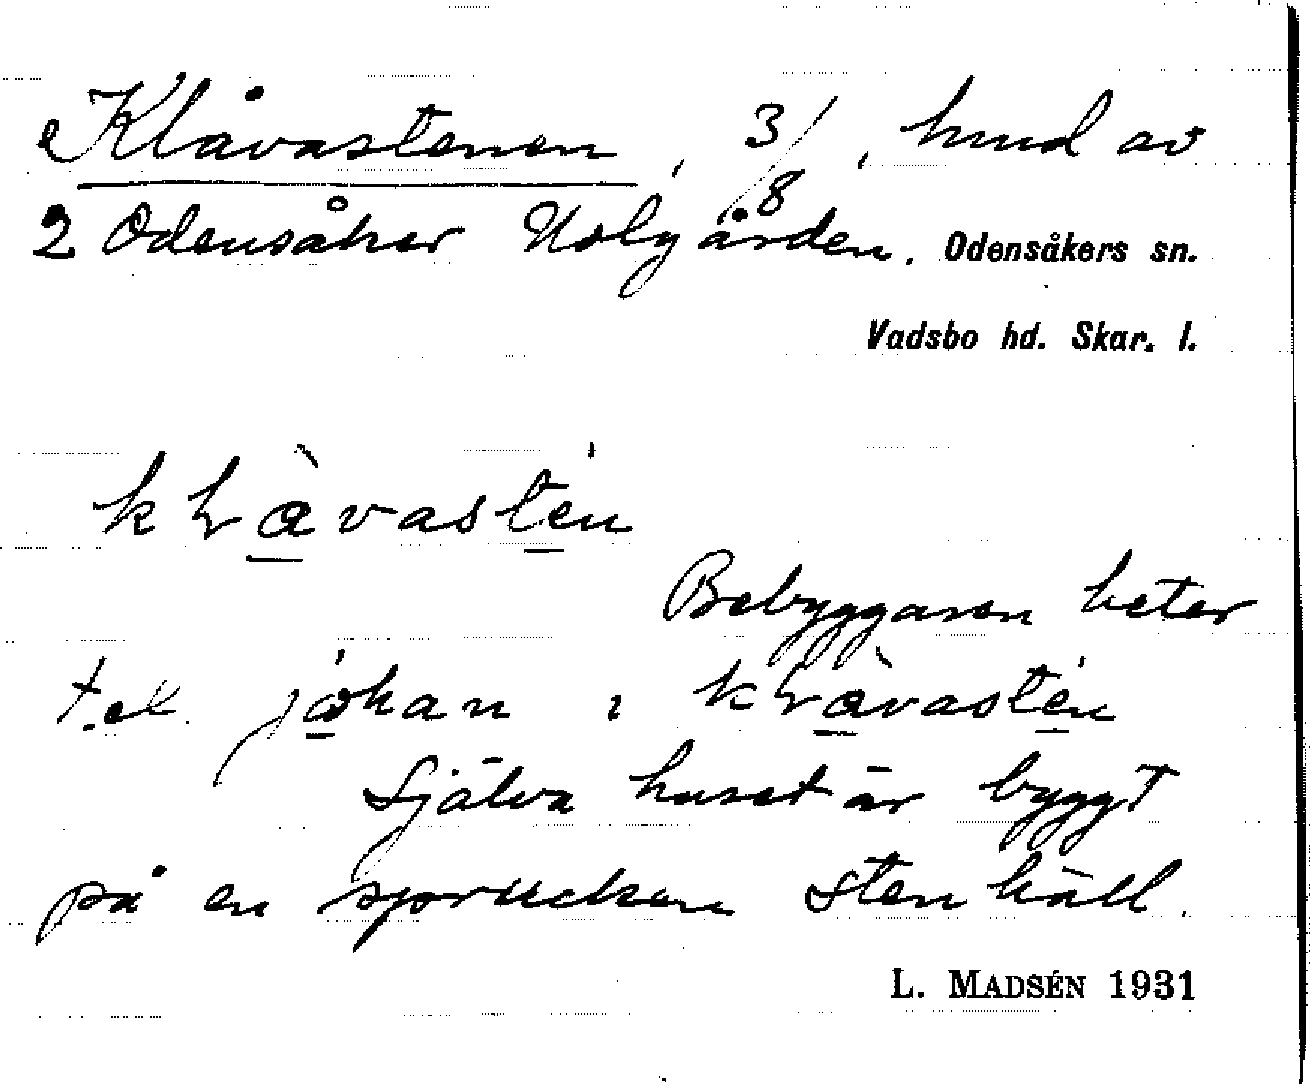 Klåvastenen, 3/8, hmd av
2 Odensåker Nolgården. Odensåkers sn.
Vadsbo hd. Skar. l.
Bebyggaren heter
t.ex. johan i
Själva huset är byggt
på en sprucken stenhäll.
L. MADSÉN 1931